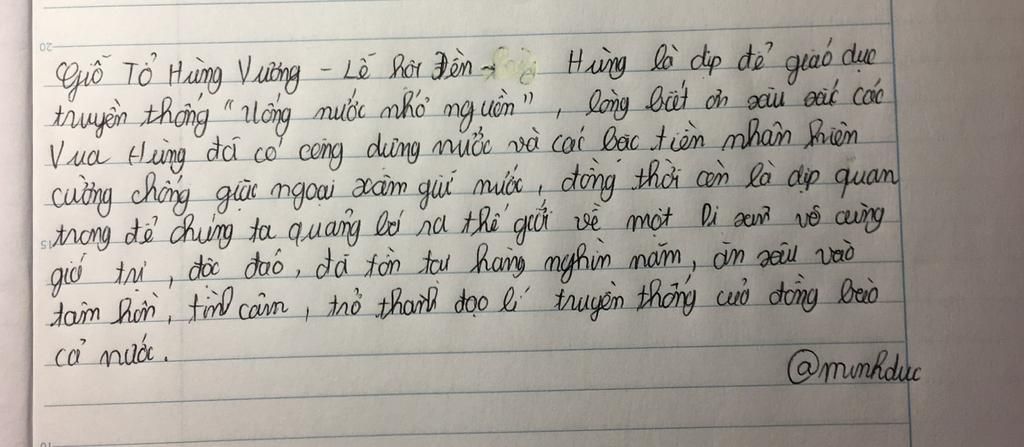 Giỗ Tổ Hùng Vương - Lễ hội Đền Hùng là dịp để giáo dục
truyền thống "Uống nước nhớ nguồn", lòng biết ơn sâu sắc các
Vua Hùng đã có công dựng nước và các bậc tiền nhân kiên
cường chống giặc ngoại xâm giữ nước, đồng thời còn là dịp quan
trọng để chúng ta quảng bá ra thế giới về một di sản vô cùng
giá trị, độc đáo, đã tồn tại hàng nghìn năm, ăn sâu vào
tâm hồn, tình cảm, trở thành đạo lí truyền thống của đồng bào
cả nước.
@minhduc